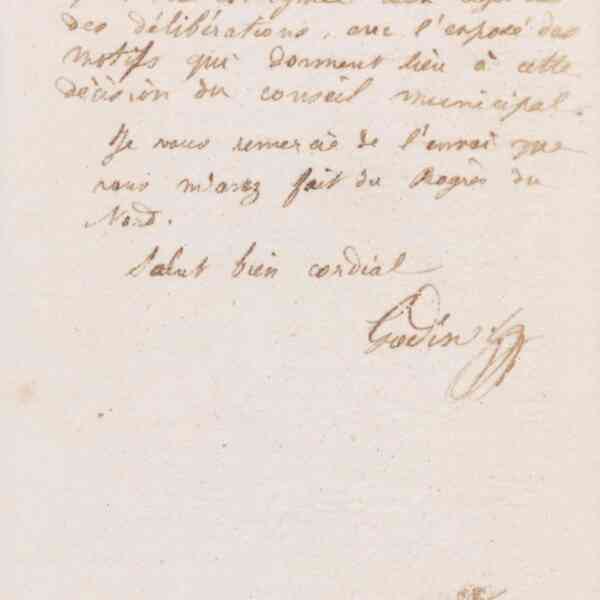 des délibérations, avec l'exposé des
motifs qui donnent lieu à cette
décision du conseil municipal.
Je vous remercie de l'envoi que
vous m'avez fait du Progrès du
Nord.
Salut bien cordial
Godin